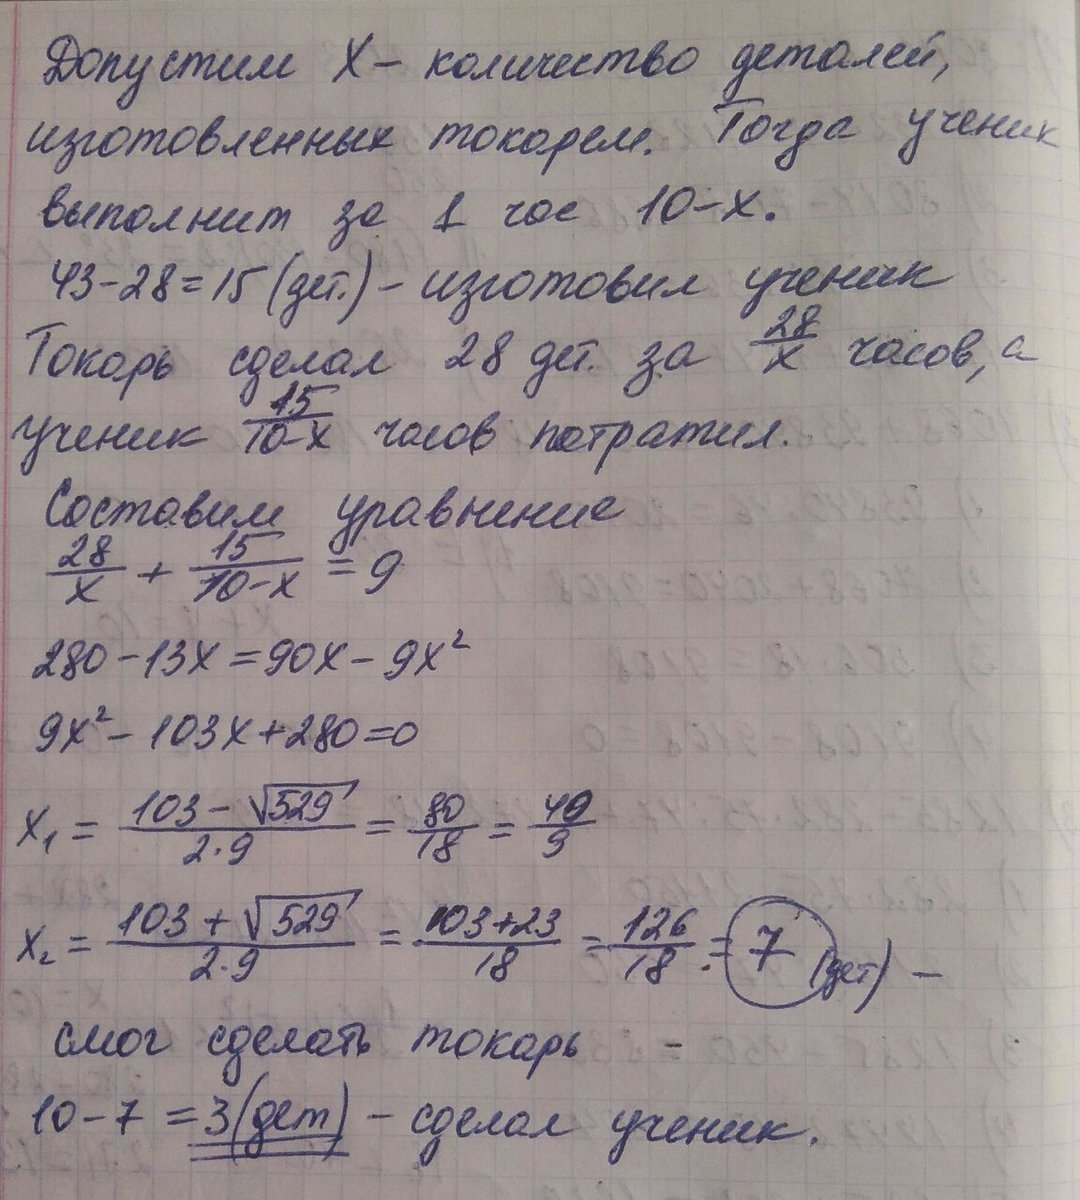 Допустим X – количество деталей,
изготовленных токарем. Тогда ученик
выполнит за 1 час 10-x.
43-28=15 (дет.) - изготовил ученик
Токарь сделал 28 дет. за 28/x часов, а
ученик 15/10-x часов потратил.
Составим уравнение
28/x + 15/10-x = 9
280-13x=90x-9x²
9x²-103x+280=0
x₁ = 103-√529/2·9 = 80/18 = 40/9
x₂ = 103+√529/2·9 = 103+23/18 = 126/18 = 7 (дет) –
смог сделать токарь -
10-7 = 3(дет) – сделал ученик.